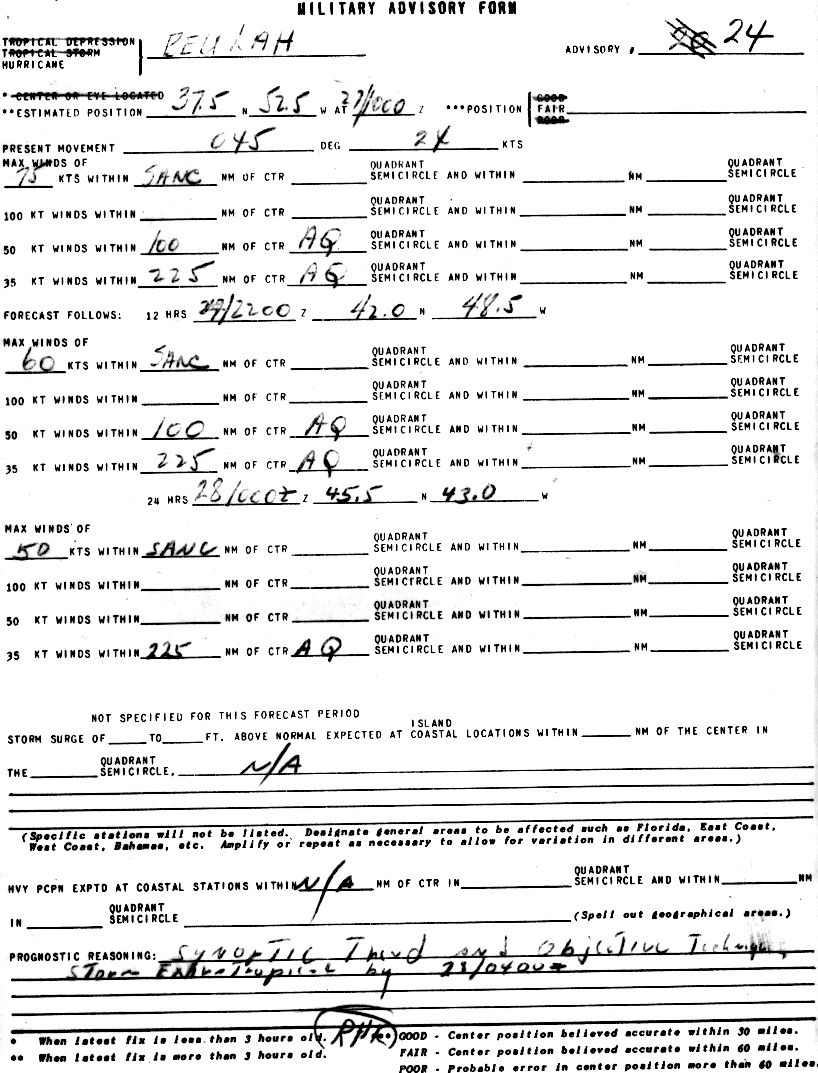 MILITARY ADVISORY FORM
TROPICAL DEPRESSION
TROPICAL STORM
HURRICANE BEULAH ADVISORY # 24
* CENTER OR EYE LOCATED
**ESTIMATED POSITION 37.5 N 52.5 W AT 27/1000 Z ***POSITION GOOD FAIR POOR
PRESENT MOVEMENT 045 DEG 24 KTS
MAX WINDS OF
75 KTS WITHIN SANC NM OF CTR QUADRANT SEMICIRCLE AND WITHIN NM QUADRANT SEMICIRCLE
100 KT WINDS WITHIN NM OF CTR QUADRANT SEMICIRCLE AND WITHIN NM QUADRANT SEMICIRCLE
50 KT WINDS WITHIN 100 NM OF CTR AQ QUADRANT SEMICIRCLE AND WITHIN NM QUADRANT SEMICIRCLE
35 KT WINDS WITHIN 225 NM OF CTR AQ QUADRANT SEMICIRCLE AND WITHIN NM QUADRANT SEMICIRCLE
FORECAST FOLLOWS: 12 HRS 27/2200 Z 42.0 N 48.5 W
MAX WINDS OF
60 KTS WITHIN SANC NM OF CTR QUADRANT SEMICIRCLE AND WITHIN NM QUADRANT SEMICIRCLE
100 KT WINDS WITHIN NM OF CTR QUADRANT SEMICIRCLE AND WITHIN NM QUADRANT SEMICIRCLE
50 KT WINDS WITHIN 100 NM OF CTR AQ QUADRANT SEMICIRCLE AND WITHIN NM QUADRANT SEMICIRCLE
35 KT WINDS WITHIN 225 NM OF CTR AQ QUADRANT SEMICIRCLE AND WITHIN NM QUADRANT SEMICIRCLE
24 HRS Z 45.5 N 43.0 W
MAX WINDS OF
50 KTS WITHIN SANC NM OF CTR QUADRANT SEMICIRCLE AND WITHIN NM QUADRANT SEMICIRCLE
100 KT WINDS WITHIN NM OF CTR QUADRANT SEMICIRCLE AND WITHIN NM QUADRANT SEMICIRCLE
50 KT WINDS WITHIN NM OF CTR QUADRANT SEMICIRCLE AND WITHIN NM QUADRANT SEMICIRCLE
35 KT WINDS WITHIN 225 NM OF CTR AQ QUADRANT SEMICIRCLE AND WITHIN NM QUADRANT SEMICIRCLE
NOT SPECIFIED FOR THIS FORECAST PERIOD
STORM SURGE OF TO FT. ABOVE NORMAL EXPECTED AT ISLAND COASTAL LOCATIONS WITHIN NM OF THE CENTER IN
THE QUADRANT SEMICIRCLE, N/A
(Specific stations will not be listed. Designate general areas to be affected such as Florida, East Coast,
West Coast, Bahamas, etc. Amplify or repeat as necessary to allow for variation in different areas.)
HVY PCPN EXPTD AT COASTAL STATIONS WITHIN N/A NM OF CTR IN QUADRANT SEMICIRCLE AND WITHIN NM
IN QUADRANT SEMICIRCLE (Spell out geographical areas.)
PROGNOSTIC REASONING: Synoptic Trend and Objective Technique,
Storm Extratropical by 28/0400Z
* When latest fix is less than 3 hours old. GOOD - Center position believed accurate within 30 miles.
** When latest fix is more than 3 hours old. FAIR - Center position believed accurate within 60 miles.
POOR - Probable error in center position more than 60 miles.